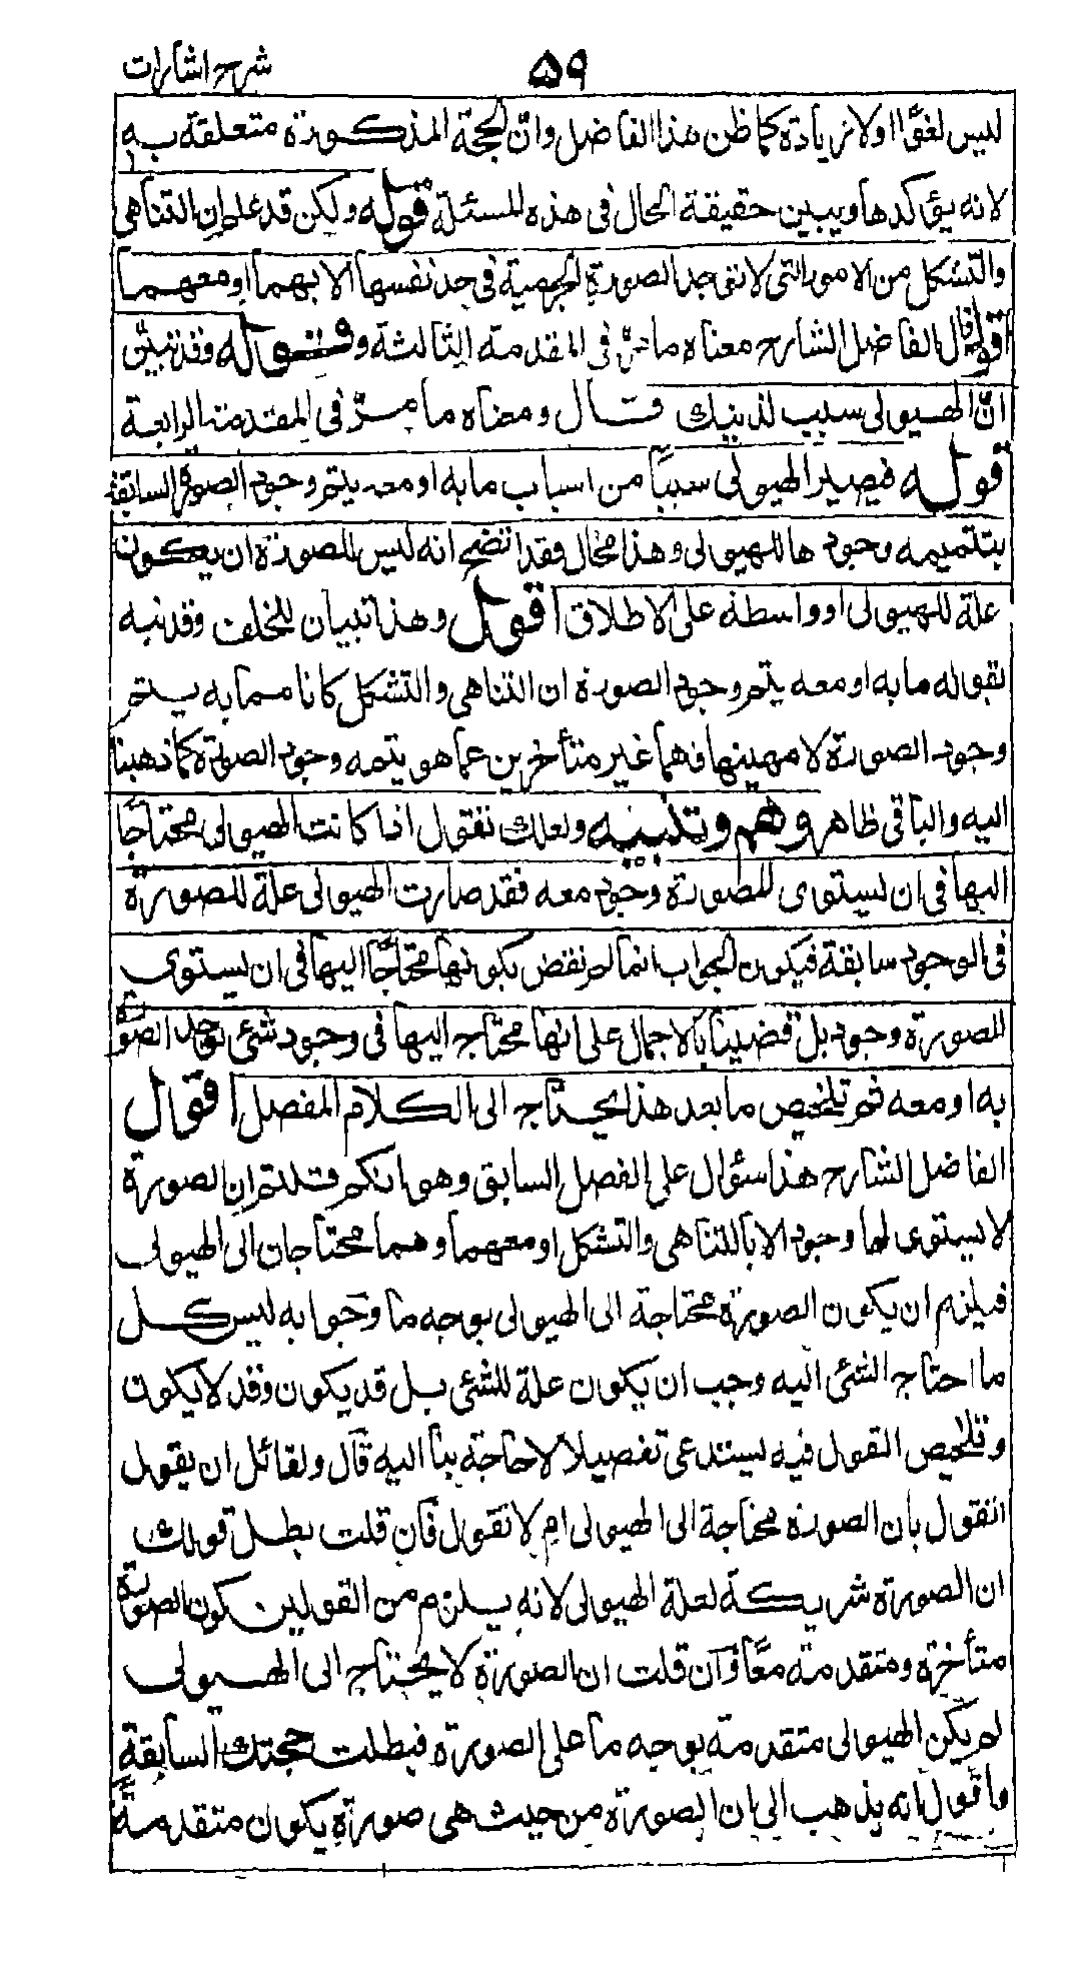 شرح اشارات
۵۹
ليس لغوًا اولا زيادة كما ظن هذا الفاضل وانّ الحجة المذكورة متعلقة به
لانه يؤكدها ويبين حقيقة الحال فى هذه المسئلة قوله ولكن قد علم ان التناهى
والتشكل من الامور التى لا توجد الصورة الجرمية فى حد نفسها الا بهما او معهما
اقول قال الفاضل الشارح معناه ما مرّ فى المقدمة الثالثة وقوله وقد تبيّن
انّ الهيولى سبب لذينك قال ومعناه ما مرّ فى المقدمة الرابعة
قوله فيصير الهيولى سببًا من اسباب ما به او معه يتم وجود الصورة السابقة
بتتميمه وجودها للهيولى وهذا محال فقد اتضح انه ليس للصورة ان يكون
علة للهيولى او واسطة على الاطلاق اقول وهذا تبيان للخلف وقد نبه
بقوله ما به او معه يتم وجود الصورة ان التناهى والتشكل كانا مما به يتم
وجود الصورة لا مهيتها فهما غير متأخرين عما هو يتمه وجود الصورة كما ذهبنا
اليه والباقى ظاهر وهم وتنبيه ولعلك تقول اذا كانت الهيولى محتاجًا
اليها فى ان يستوى للصورة وجود معه فقد صارت الهيولى علة للصورة
فى الوجود سابقة فيكون الجواب انما لم نقض بكونها محتاجًا اليها فى ان يستوى
للصورة وجود بل قضينا بالاجمال على انها محتاج اليها فى وجود شئ توجد الصورة
به او معه ثم تلخيص ما بعد هذا يحتاج الى الكلام المفصل اقول
الفاضل الشارح هذا سؤال على الفصل السابق وهو انكم قلتم ان الصورة
لا يستوى لها وجود الا بالتناهى والتشكل او معهما وهما محتاجان الى الهيولى
فيلزم ان يكون الصورة محتاجة الى الهيولى بوجه ما وجوابه ليس كل
ما احتاج الشئ اليه وجب ان يكون علة للشئ بل قد يكون وقد لا يكون
وتلخيص القول فيه يستدعى تفصيلا لا حاجة بنا اليه قال ولقائل ان يقول
اتقول بان الصورة محتاجة الى الهيولى ام لا تقول فان قلت بطل قولك
ان الصورة شريكة لعلة الهيولى لانه يلزم من القولين كون الصورة
متأخرة ومتقدمة معًا وان قلت ان الصورة لا يحتاج الى الهيولى
لم يكن الهيولى متقدمة بوجه ما على الصورة فبطلت حجتك السابقة
واقول انه يذهب الى ان الصورة من حيث هى صورة يكون متقدمة